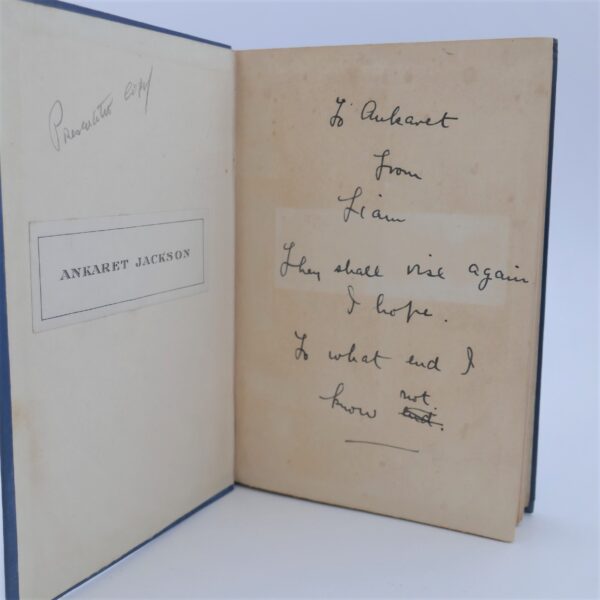 Presentation Copy
ANKARET JACKSON
To Ankaret
from
Liam
They shall rise again
I hope.
To what end I
know not.